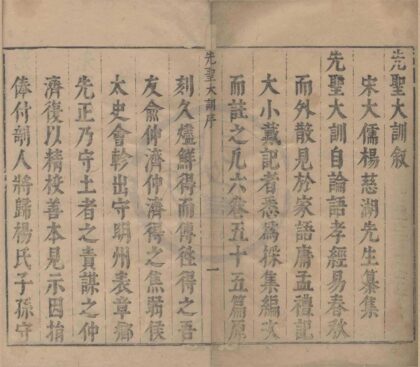 先聖大訓敘
宋大儒楊慈湖先生纂集
先聖大訓自論語孝經易春秋
而外散見於家語庸孟禮記
大小戴記者悉為採集編次
而註之凡六卷五十五篇原
先聖大訓序
一
刻久燼鮮得而傳從得之吾
友俞仲濟仲濟得之焦弱侯
太史會幹出守明州表章鄉
先正乃守土者之責謀之仲
濟復以精校善本見示因捐
俸付剞人將歸楊氏子孫守